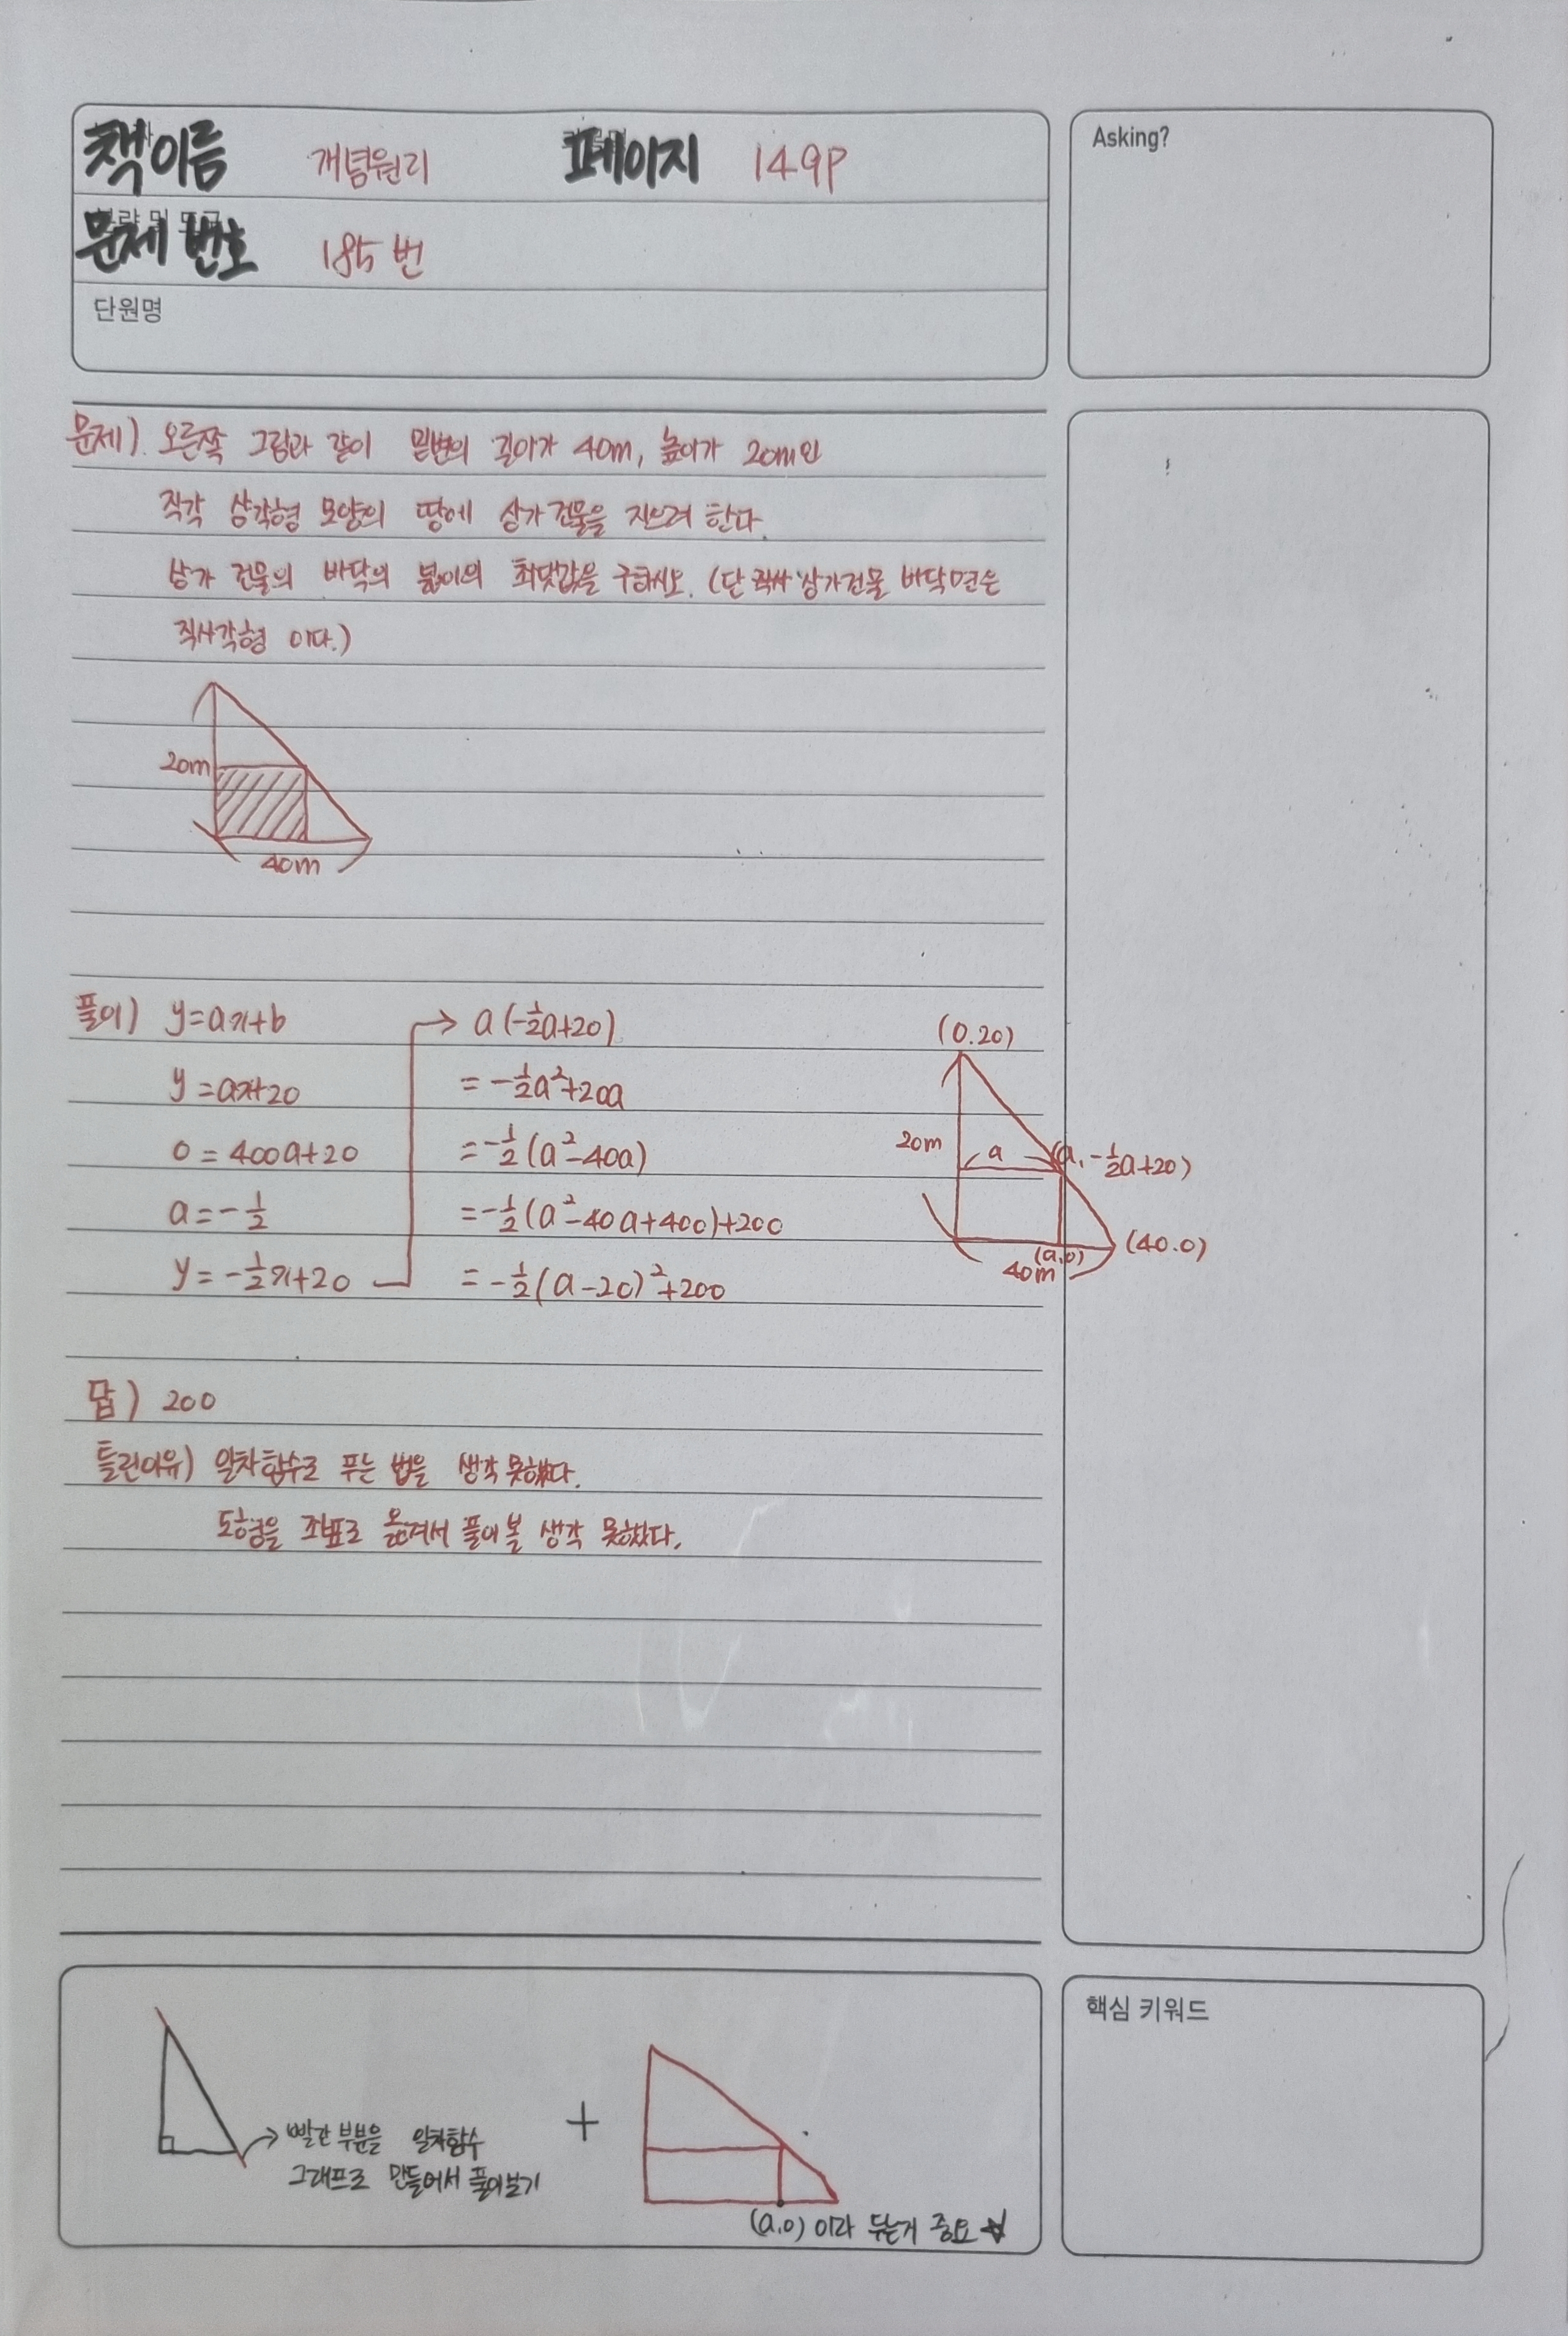 책이름 개념원리 페이지 149p
문제 번호 185번
단원명
Asking?
문제) 오른쪽 그림과 같이 밑변의 길이가 40m, 높이가 20m인
직각 삼각형 모양의 땅에 상가건물을 지으려 한다.
상가 건물의 바닥의 넓이의 최댓값을 구하시오. (단 상가건물 바닥면은
직사각형 이다.)
20m
40m
풀이) y=ax+b
y=ax+20
0=400a+20
a=-1/2
y=-1/2x+20
→ a(-1/2a+20)
=-1/2a²+20a
=-1/2(a²-40a)
=-1/2(a²-40a+400)+200
=-1/2(a-20)²+200
(0.20)
20m
a
(a,-1/2a+20)
(40.0)
(a,0)
40m
답) 200
틀린이유) 일차함수로 푸는 법을 생각못했다.
도형을 좌표로 옮겨서 풀어볼 생각 못했다.
→ 빨간 부분을 일차함수
그래프로 만들어서 풀어보기
+
(a.0) 이라 두는거 중요 ☆
핵심 키워드